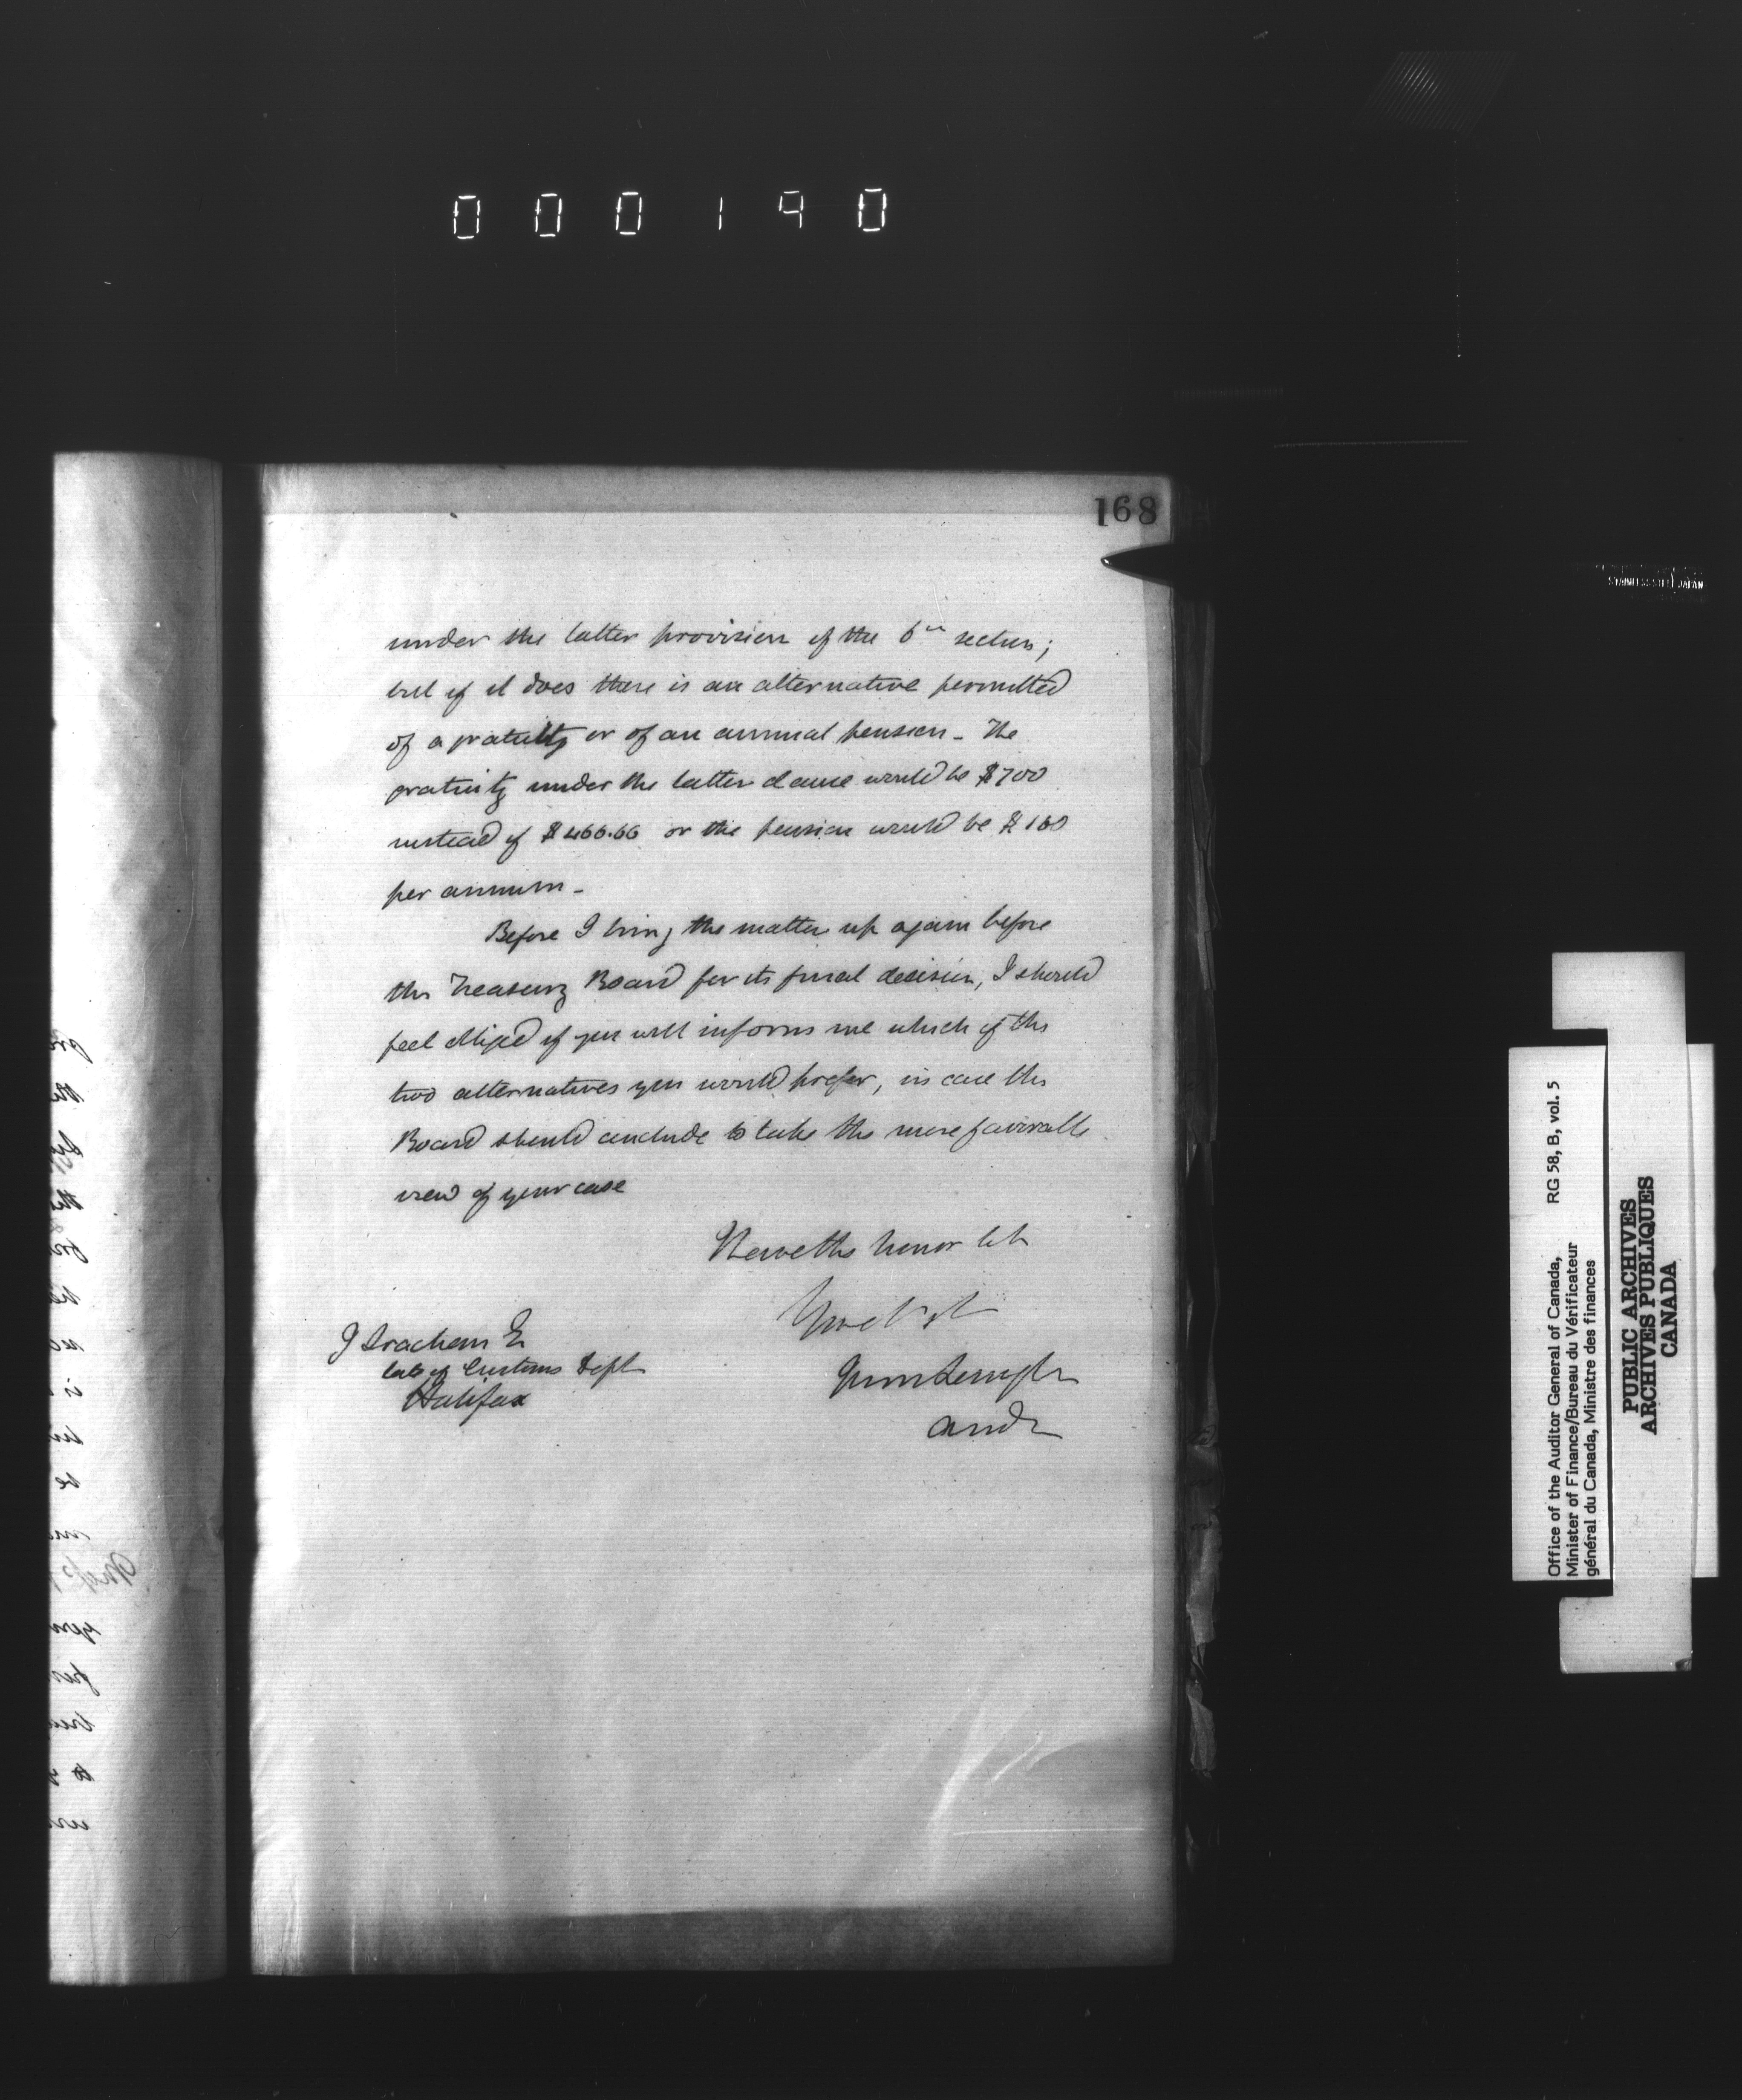 000190
168
under the latter provision of the 6th section;
but if it does there is an alternative permitted
of a gratuity or of an annual pension - The
gratuity under the latter clause would be $700
instead of $466.66 or the pension would be $
per annum -
Before I bring the matter up again before
the Treasury Board for its final decision, I should
feel obliged if you will inform me which of the
two alternatives you would prefer, in case the
Board should conclude to take the more favorable
view of your case
I have the honor
J
late of Customs Dept
Halifax
Audr
STAINLESS STEEL JAPAN
Office of the Auditor General of Canada, RG 58, B, vol. 5
Minister of Finance/Bureau du Vérificateur
général du Canada, Ministre des finances
PUBLIC ARCHIVES
ARCHIVES PUBLIQUES
CANADA